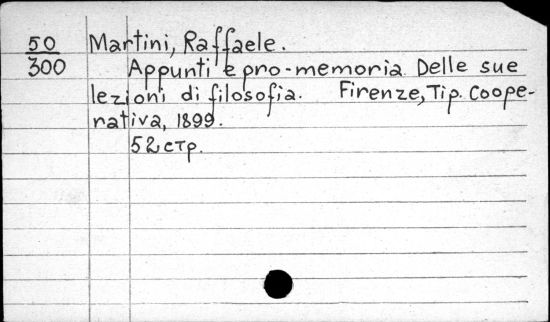 50 Martini, Raffaele.
300 Appunti e pro-memoria Delle sue
lezioni di filosofia. Firenze, Tip. Coope-
rativa, 1899.
52 стр.